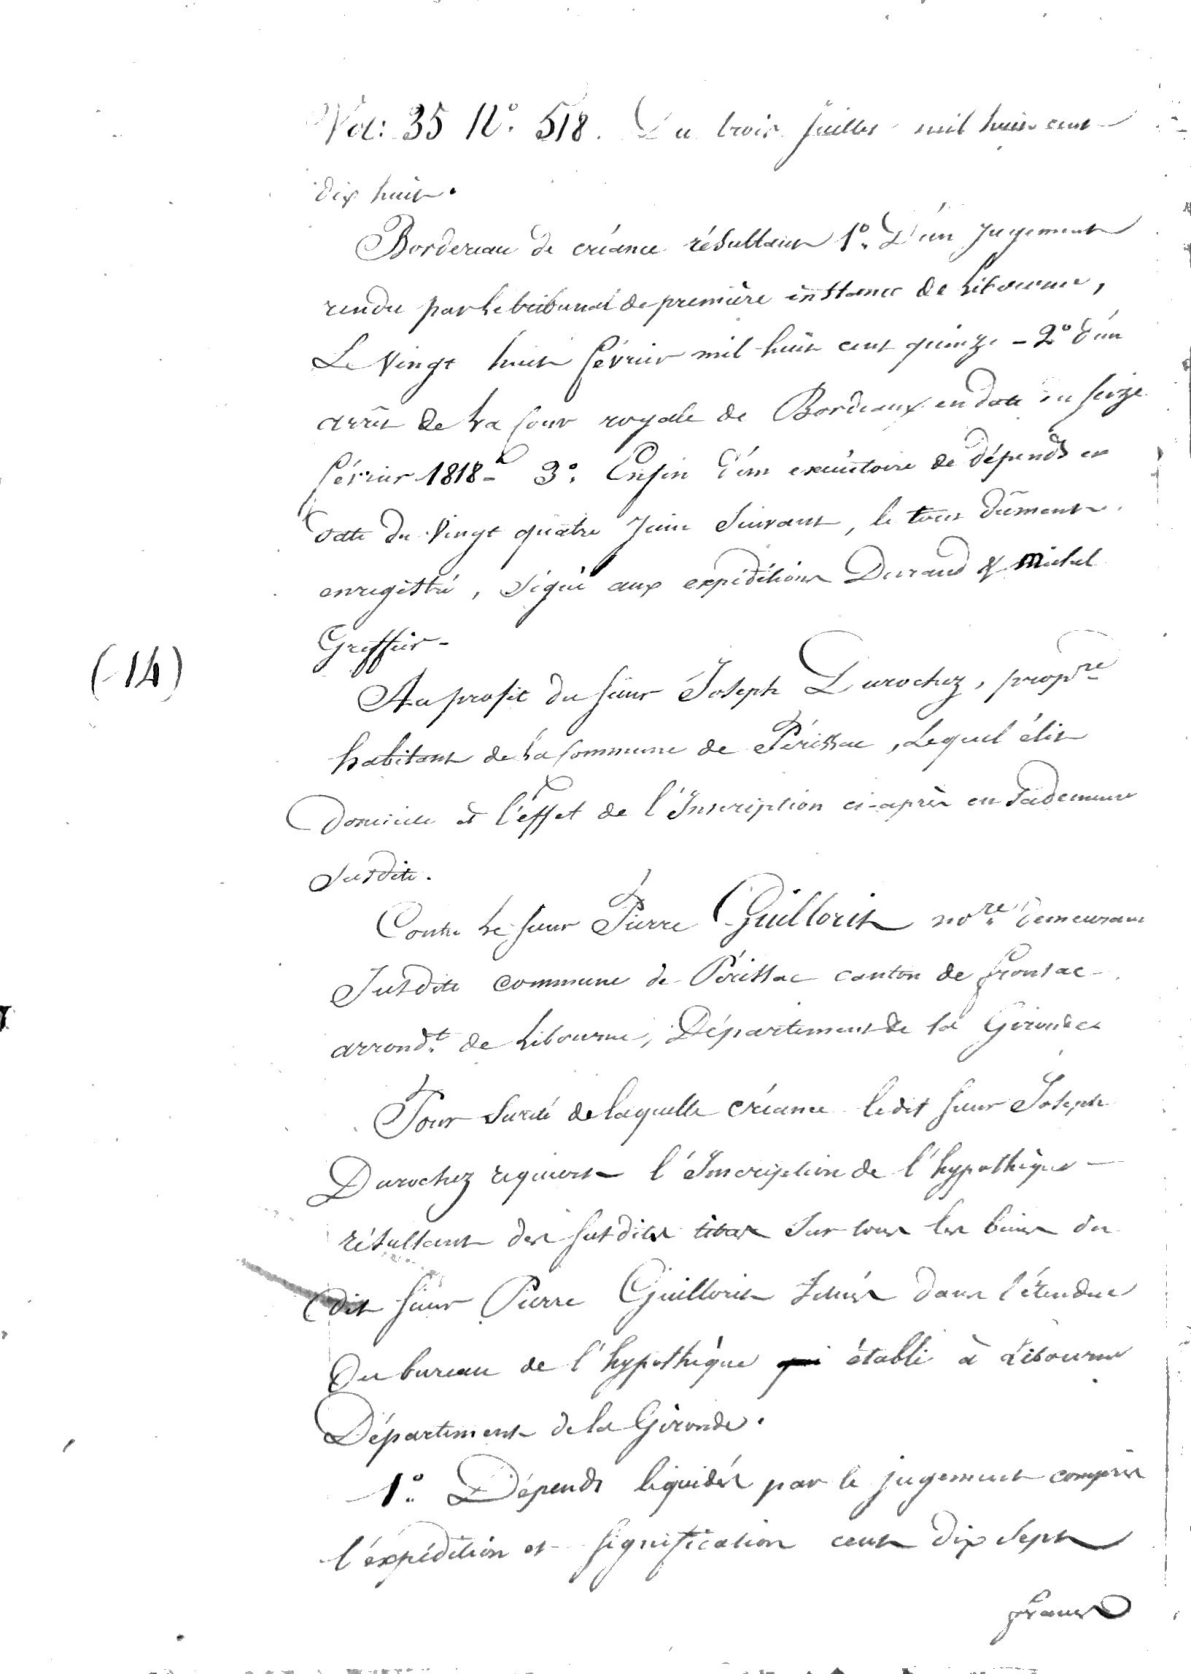 Vol: 35 N°. 518. Du trois juillet mil huit cent
dix huit.
Bordereau de créance résultant 1°. D'un jugement
rendu par le tribunal de première instance de Libourne,
Le Vingt huit février mil huit cent quinze - 2° d'un
arrêt de La Cour royale de Bordeaux en date du seize
février 1818 - 3°. Enfin d'un exécutoire de dépends en
date du Vingt quatre Juin Suivant, le tout dûment
enregistré, Signé aux expéditions Durand & Michel
Greffier -
(14)
Au profit du sieur Joseph Durochez, propre
habitant de la commune de Périssac, Lequel élit
Domicile à l'éffet de l'Inscription ci-après en sa demeure
Susdite.
Contre Le sieur Pierre Guillorit nore. demeurant
Susdite commune de Périssac canton de fronsac
arrondt. de Libourne, Département de la Gironde
Pour Sureté de laquelle créance ledit sieur Joseph
Durochez requiert l'Inscription de l'hypothèque
résultant des susdits titres Sur tous les biens du
dit sieur Pierre Guillorit Situés dans l'étendue
Du bureau de l'hypothèque établi à Libourne
Département de la Gironde.
1°. Dépends liquidés par le jugement compris
l'éxpédition et signification cent dix sept
francs